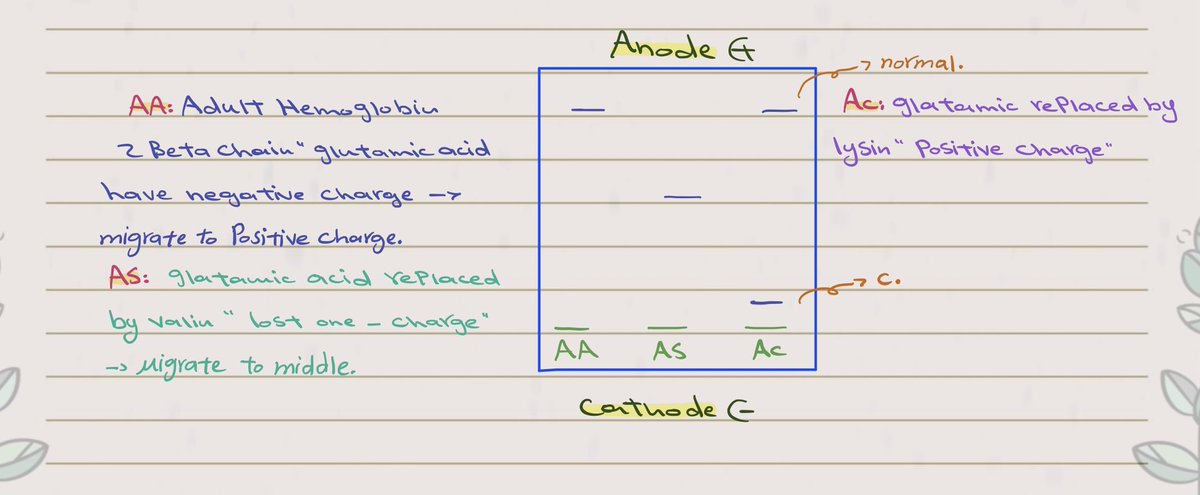 Anode +
→ normal.
AA: Adult Hemoglobin
2 Beta chain" glutamic acid
have negative charge →
migrate to Positive charge.
AS: glatamic acid replaced
by valin " lost one - charge"
→ Migrate to middle.
Ac: glatamic replaced by
lysin" Positive charge"
→ C.
AA AS Ac
Cathode -